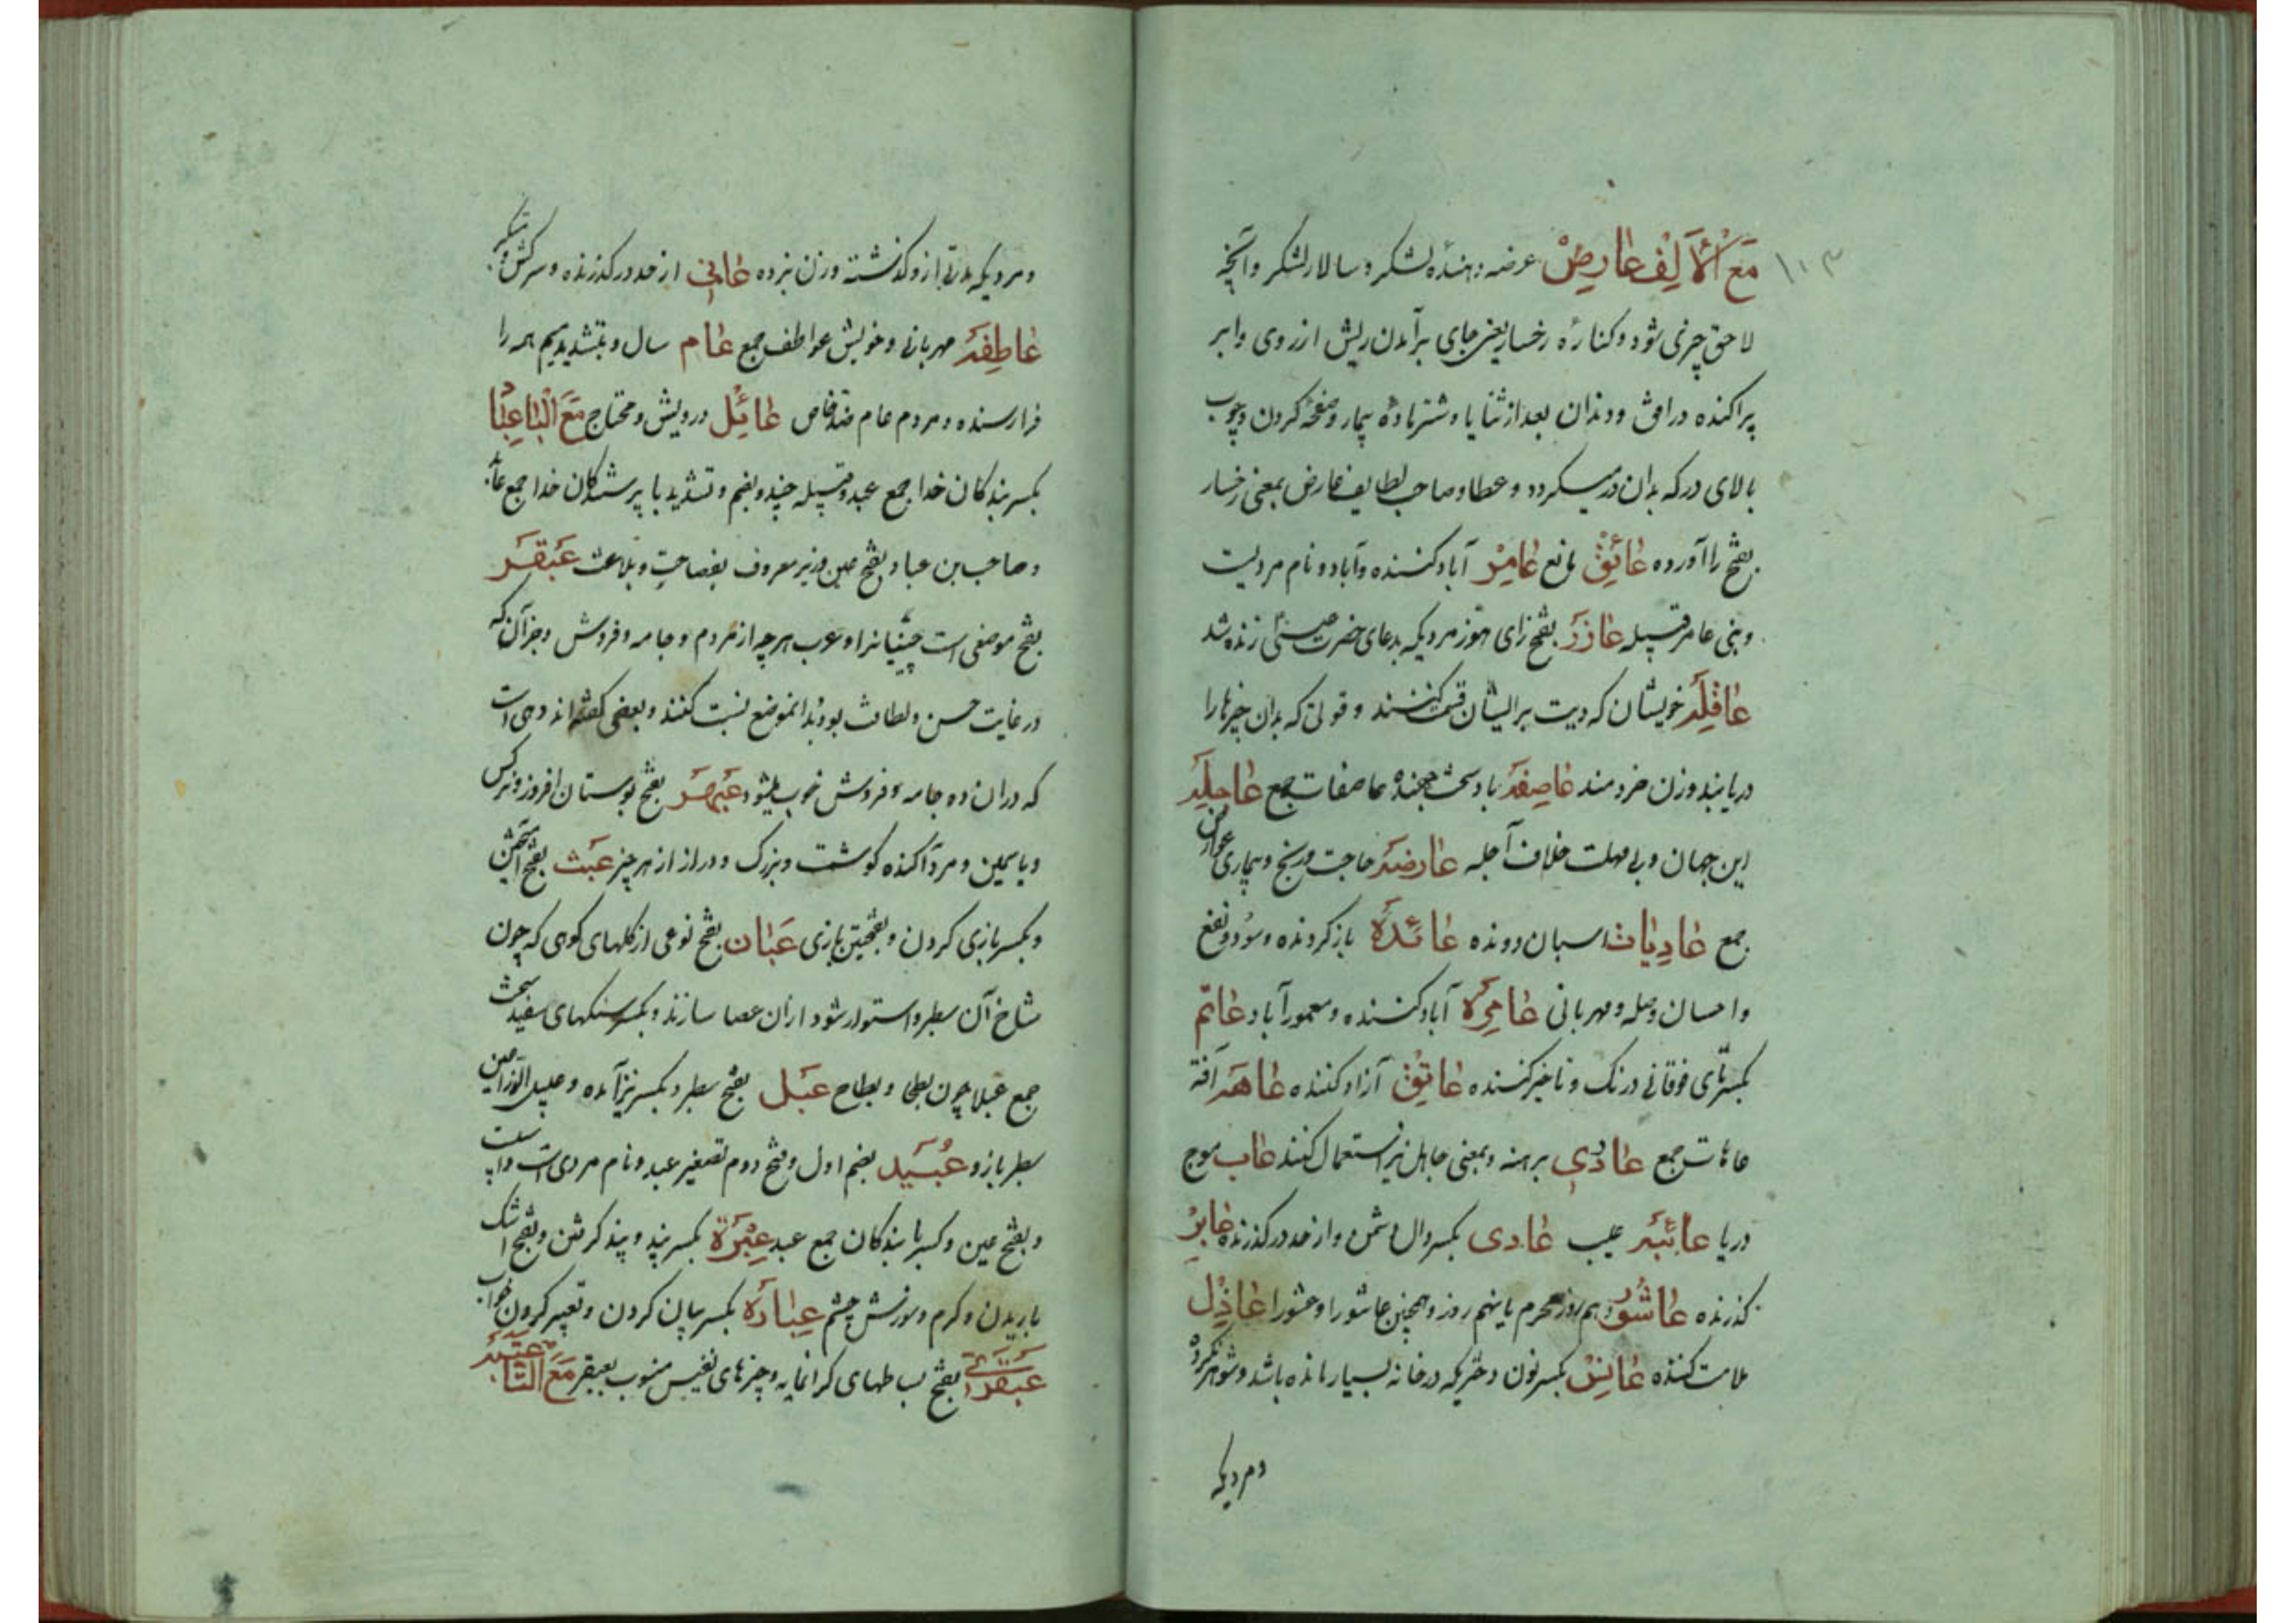 ۱۰۳
مَعَ الْاَلِفِ عارِضْ عرضه دهندهٔ لشکر و سالار لشکر و آنچه
لاحق چیزی شود و کنارهٔ رخسار یعنی جای برآمدن ریش از روی و ابر
پراکنده در افق و دندان بعد از ثنایا و شتر مادهٔ بیمار و صفحهٔ کردن و چوب
بالای در که بدان در میکردد و عطا و صاحب لطایف عارض بمعنی رخسار
بفتح را آورده عائِقْ مانع عامِرْ آباد کننده و آباد و نام مردیست
و بنی عامر قبیله عازَرَ بفتح زای هوز مردیکه بدعای حضرت عیسی زنده شد
عاقِلَه خویشان که دیت بر ایشان قسمت کنند و قوتی که بدان چیزها را
دریابند و زن خردمند عاصِفَه باد سخت جهنده عاصفات جمع عاجِلَه
این جهان و بی مهلت خلاف آجله عارضَه حاجت و رنج و بیماری عوارض
جمع عادِیات اسبان دونده عائدَه باز کردنده و سود و نفع
و احسان و صله و مهربانی عامِرَه آباد کننده و معمور آباد عاتم
بکسر تای فوقانی درنک و تاخیر کننده عاتِقْ آزاد کننده عاهَه آفة
عاهات جمع عاری برهنه و بمعنی جاهل نیز استعمال کنند عاب موج
دریا عائبَه عیب عادی بکسر دال دشمن و از حد در کذرنده عابِرْ
کذرنده عاشُورْ دهم روز محرم یا نهم روز و همچنین عاشورا و عشورا عاذِل
ملامت کننده عانِسْ بکسر نون دختریکه در خانه بسیار مانده باشد و شوهر نکرده
و مردیکه
و مردیکه مدتی ازو کذشته و زن نبرده عاتی از حد در کذرنده و سرکش و متکبر
عاطِفَه مهربانی و خویش عواطف جمع عام سال و بتشدید میم همه را
فرا رسنده و مردم عام ضد خاص عائِل درویش و محتاج مَعَ الْبَا عِباد
بکسر بندکان خدا جمع عبد و قبیله چند و بضم و تشدید با پرستندکان خدا جمع عابد
و صاحب بن عباد بفتح عین وزیر معروف بفصاحت و بلاغت عَبْقَر
بفتح موضعی است جنیانرا و عرب هر چه از مردم و جامه و فروش و جز آن که
در غایت حسن و لطافت بود بدانموضع نسبت کنند و بعضی کفته اند دهی است
که در ان ده جامه و فروش خوب میشود عَبْهَر بفتح بوستان افروز و نرکس
و یاسمین و مرد آکنده کوشت و بزرک و دراز از هر چیز عَبَث بفتح آمیختن
و بکسر بازی کردن و بفتحتین بازی عَبان بفتح نوعی از کلهای کوهی که چون
شاخ آن سطبر و استوار شود از ان عصا سازند و بکسر سنکهای سفید سخت
جمع عبلا چون بطحا و بطاح عَبْل بفتح سطبر و بکسر نیز آمده و عبل الذراعین
سطبر بازو عُبَید بضم اول و فتح دوم تصغیر عبد و نام مردی است
و بفتح عین و کسر با بندکان جمع عبد عِبْرَة بکسر پند و پند کرفتن و بفتح اشک
باریدن و کرم و سوزش چشم عِبارَه بکسر بیان کردن و تعبیر کردن خواب
عَبْقَری بفتح بساطهای کرانمایه و چیزهای نفیس منسوب بعبقر مَعَ التّا